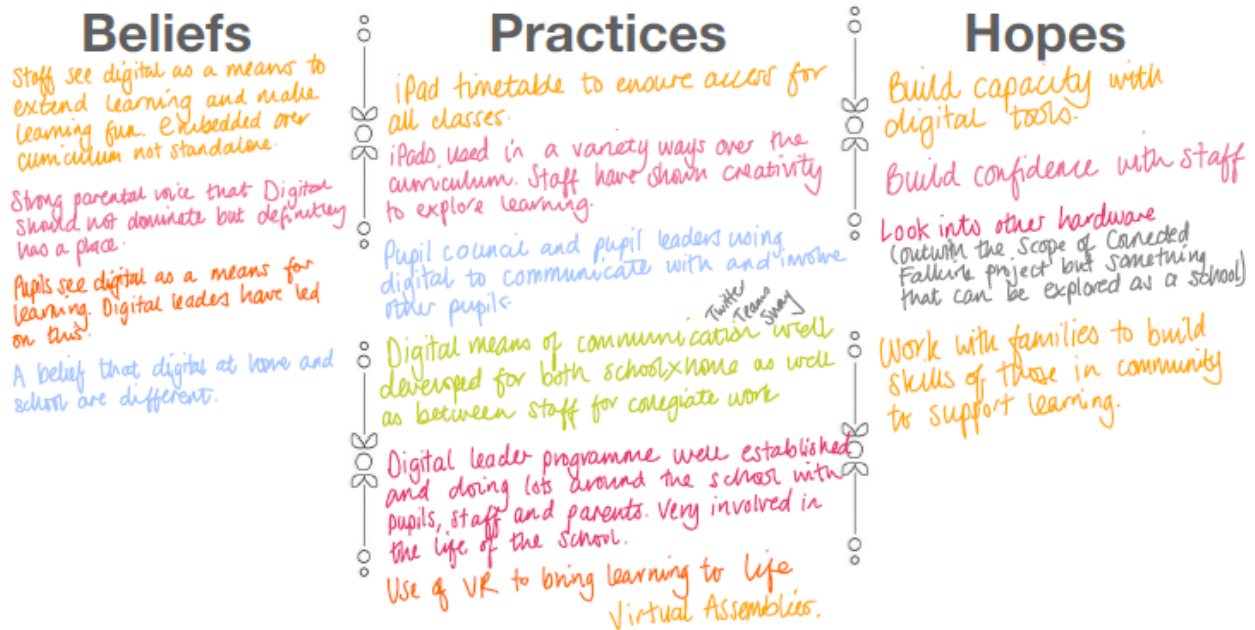 Beliefs
Staff see digital as a means to
extend learning and make
learning fun. Embedded over
curriculum not standalone.
Strong parental voice that Digital
should not dominate but definitley
has a place.
Pupils see digital as a means for
learning. Digital leaders have led
on this.
A belief that digital at home and
school are different.
Practices
iPad timetable to ensure access for
all classes.
iPads used in a variety ways over the
curriculum. Staff have shown creativity
to explore learning.
Pupil council and pupil leaders using
digital to communicate with and involve
other pupils.
Twitter
Teams
Sway
Digital means of communication well
developed for both school x home as well
as between staff for collegiate work
Digital leader programme well established
and doing lots around the school with
pupils, staff and parents. Very involved in
the life of the school.
Use of VR to bring learning to life
Virtual Assemblies.
Hopes
Build capacity with
digital tools.
Build confidence with staff
Look into other hardware
(outwith the scope of Connected
Falkirk project but something
that can be explored as a school)
Work with families to build
skills of those in community
to support learning.